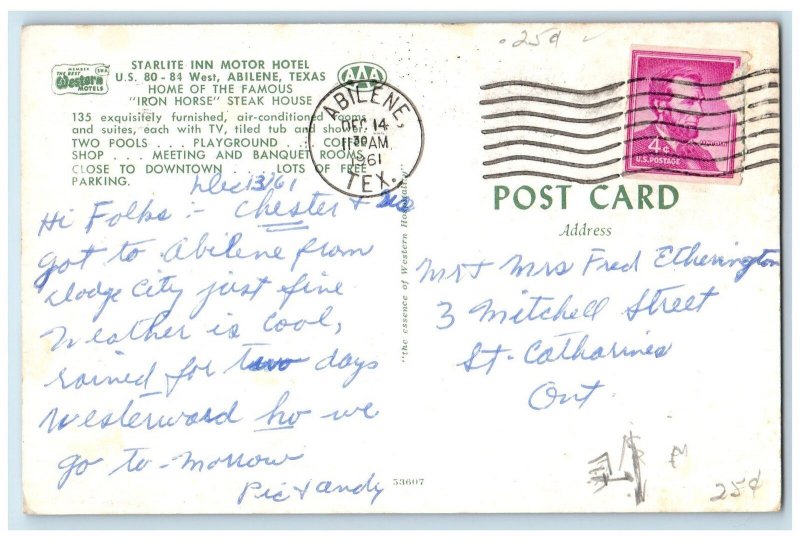 STARLITE INN MOTOR HOTEL
U.S. 80 - 84 West, ABILENE, TEXAS
HOME OF THE FAMOUS
"IRON HORSE" STEAK HOUSE
MEMBER
THE BEST
Western
MOTELS
AAA
135 exquisitely furnished, air-conditioned rooms
and suites, each with TV, tiled tub and shower.
TWO POOLS . . . PLAYGROUND . . . COFFEE
SHOP . . . MEETING AND BANQUET ROOMS
CLOSE TO DOWNTOWN . . . LOTS OF FREE
PARKING.
Dec 13/61
Hi Folks :- Chester &
got to Abilene from
Dodge City just fine
Weather is cool,
rained for two days
Westerward ho we
go to-morrow
Pic & Andy
53607
"the essence of Western Hospitality"
ABILENE,
DEC 14
11 30 AM
1961
TEX.
25¢
4¢
U.S. POSTAGE
LINCOLN
POST CARD
Address
Mr & Mrs Fred Etherington
3 Mitchell Street
St. Catharines
Ont.
25¢